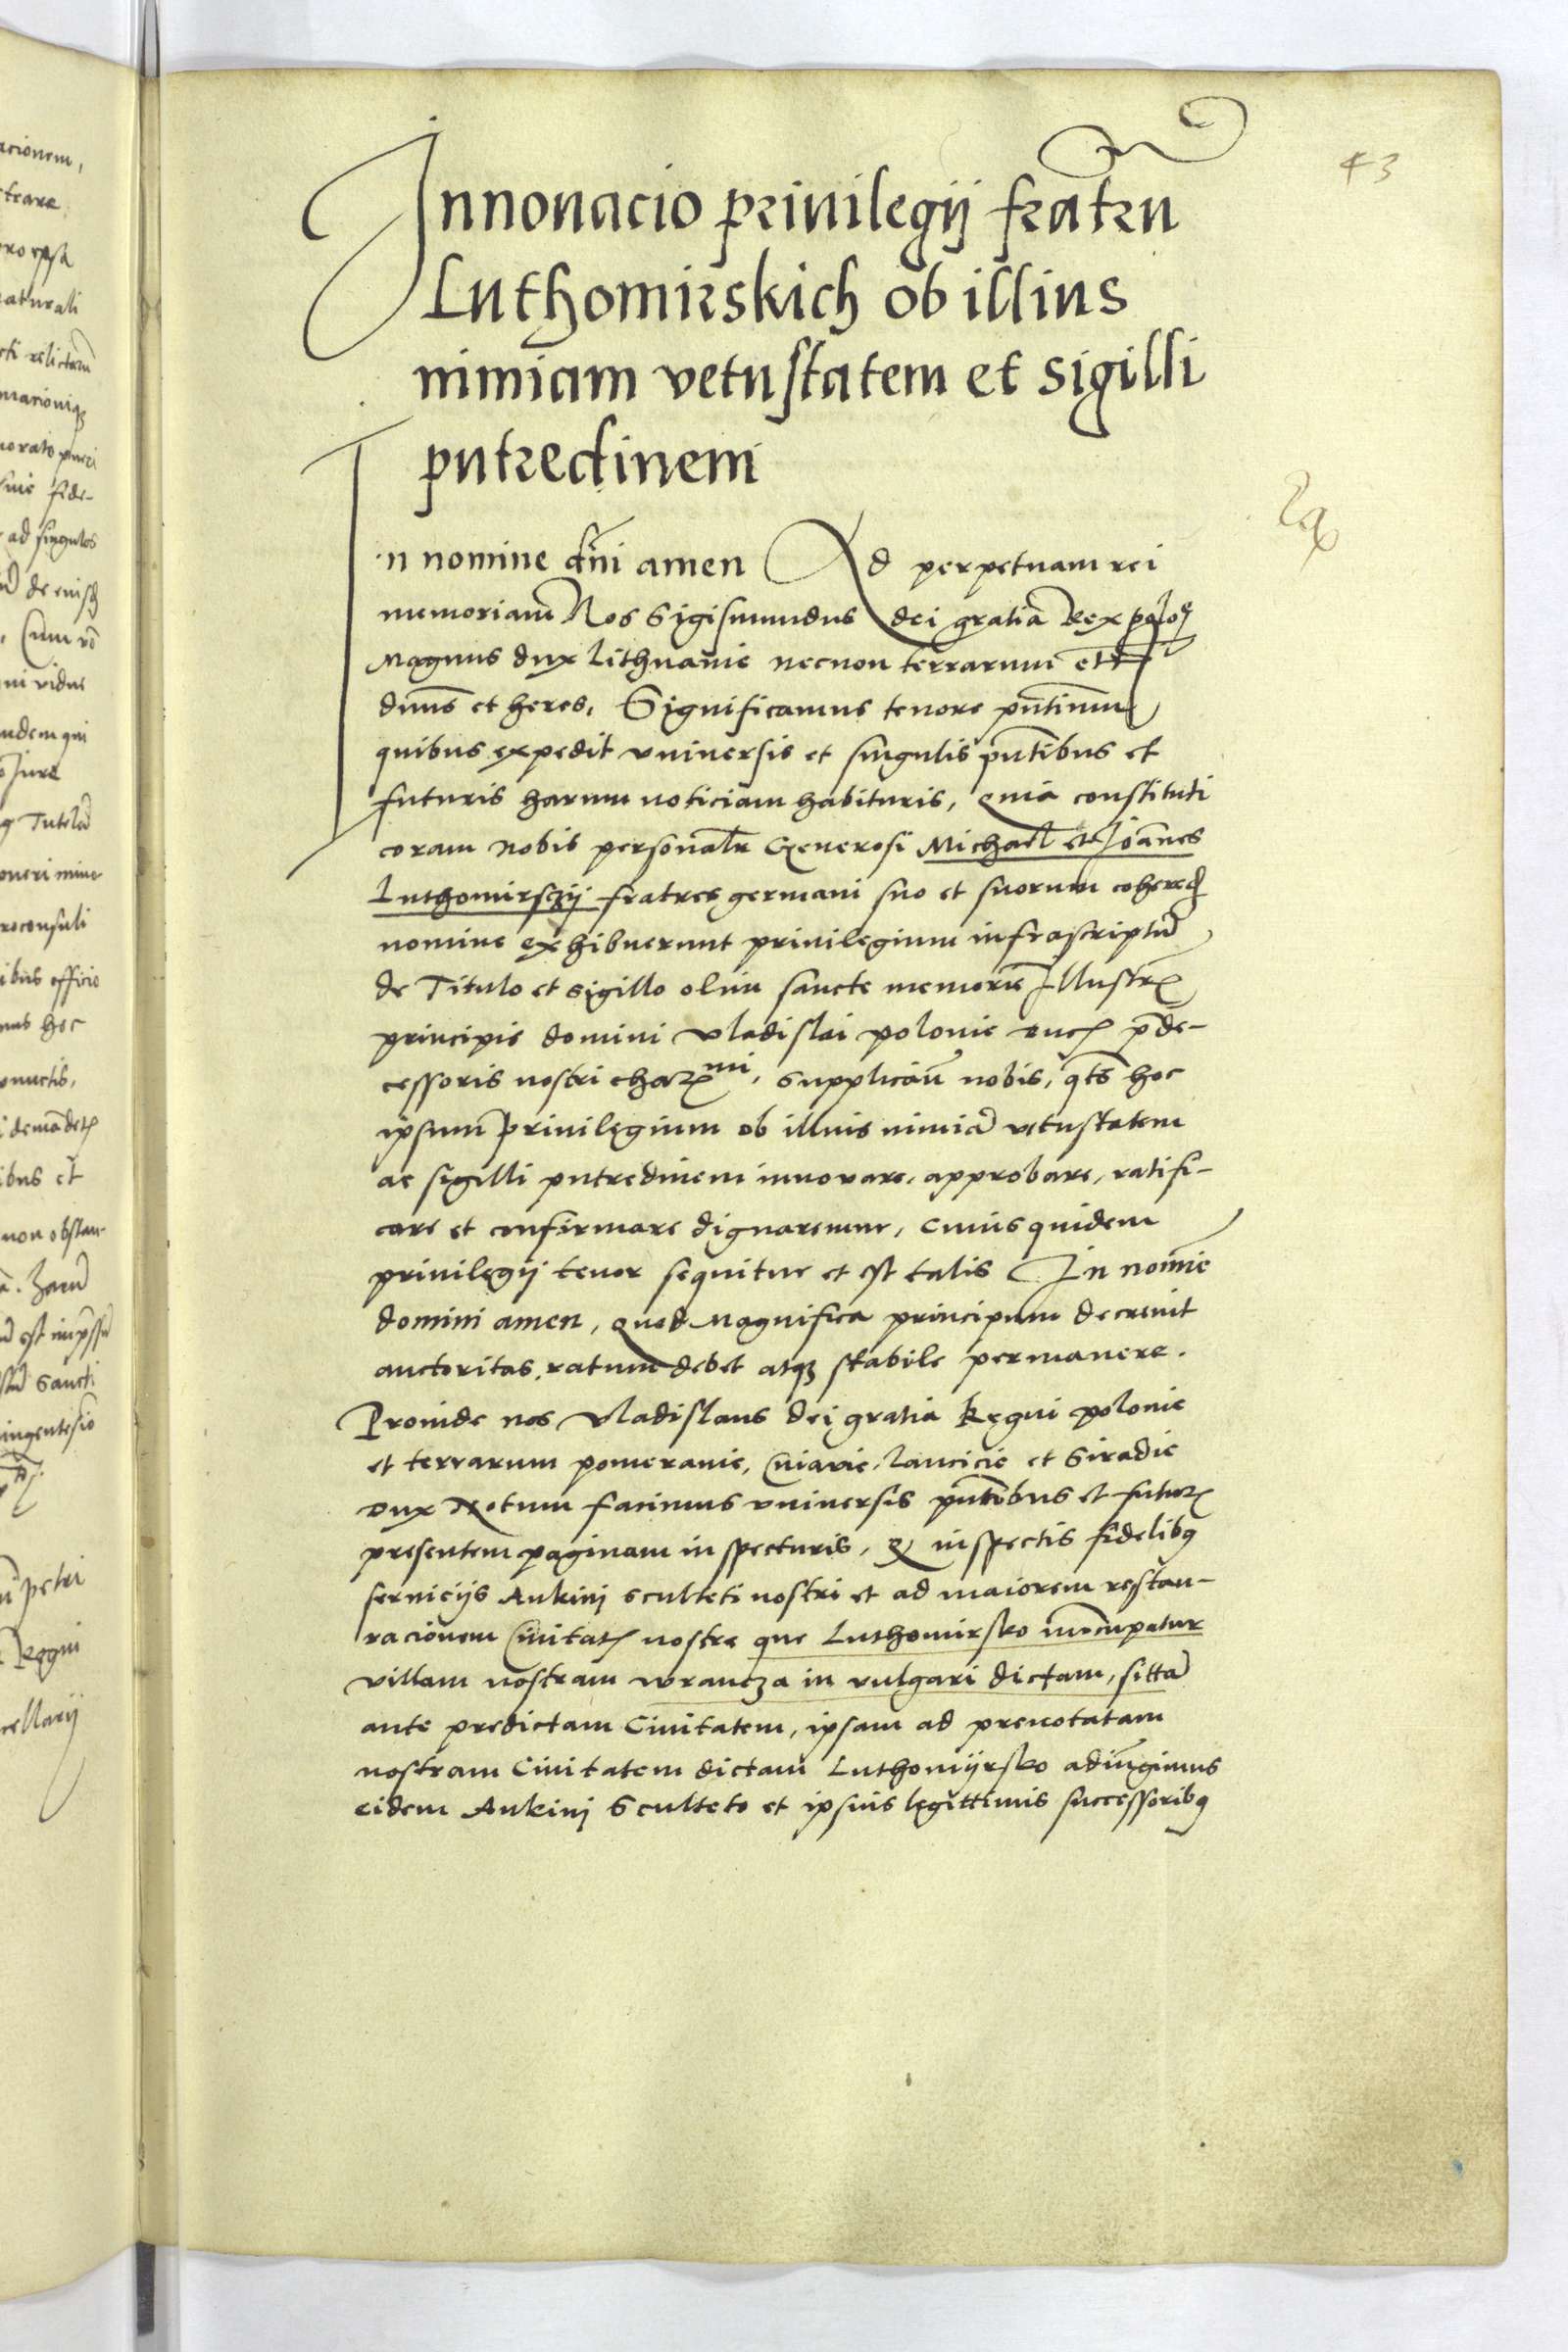 43
Innouacio priuilegij fratru
Luthomirskich ob illius
nimiam vetustatem et sigilli
putredinem
In nomine dni amen Ad perpetuam rei
memoriam Nos Sigismundus dei gratia Rex polo
Magnus dux Lithuanie necnon terrarum etc
dnus et heres, Significamus tenore pntium
quibus expedit vniuersis et singulis pntibus et
futuris harum noticiam habituris, Quia constituti
coram nobis personalr Generosi Michael et Joannes
Luthomirsczij fratres germani suo et suorum cohered
nomine exhibuerunt priuilegium infrascriptu
de Titulo et sigillo olim sancte memorie Illustr
principis domini Vladislai polonie ducis prede-
cessoris nostri charmi, supplicaru nobis, qts hoc
ipsum priuilegium ob illius nimia vetustatem
ac sigilli putredinem innouare, approbare, ratifi-
care et confirmare dignaremur, Cuius quidem
priuilegij tenor sequitur et est talis In nomie
domini amen, Quod Magnifica principum decreuit
auctoritas, ratum debet atq stabile permanere.
Prouide nos Vladislaus dei gratia Regni polonie
et terrarum pomeranie, Cuiauie, Lancicie et Siradie
Dux Notum facimus vniuersis pntibus et futur
presentem paginam inspecturis, Q inspectis fidelibq
seruicijs Ankinj sculteti nostri et ad maiorem restau-
racionem Ciuitat nostre que Luthomirsko nucupatur
villam nostram wrancza in vulgari dictam, sitta
ante predictam Ciuitatem, ipsam ad prenotatam
nostram Ciuitatem dictam Luthomijrsko adiungimus
eidem Ankinj Sculteto et ipsius legittimis successoribq